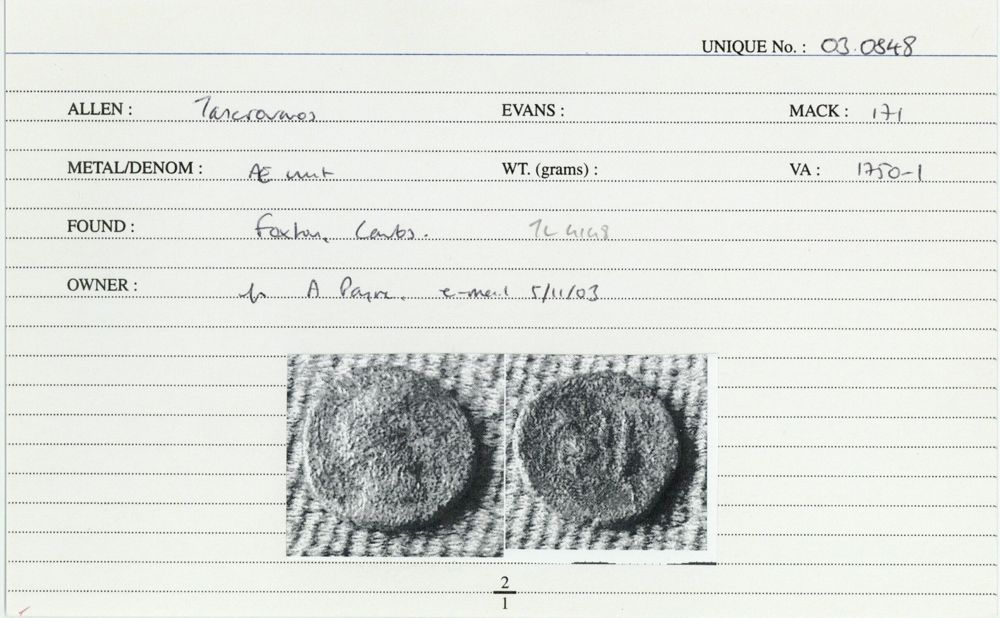 UNIQUE No. : 03.0848
ALLEN : Tasciovanos EVANS : MACK : 171
METAL/DENOM : Æ unit WT. (grams) : VA : 1750-1
FOUND : Foxton, Cambs. TL 4148
OWNER : A Payne. e-mail 5/11/03
2
1